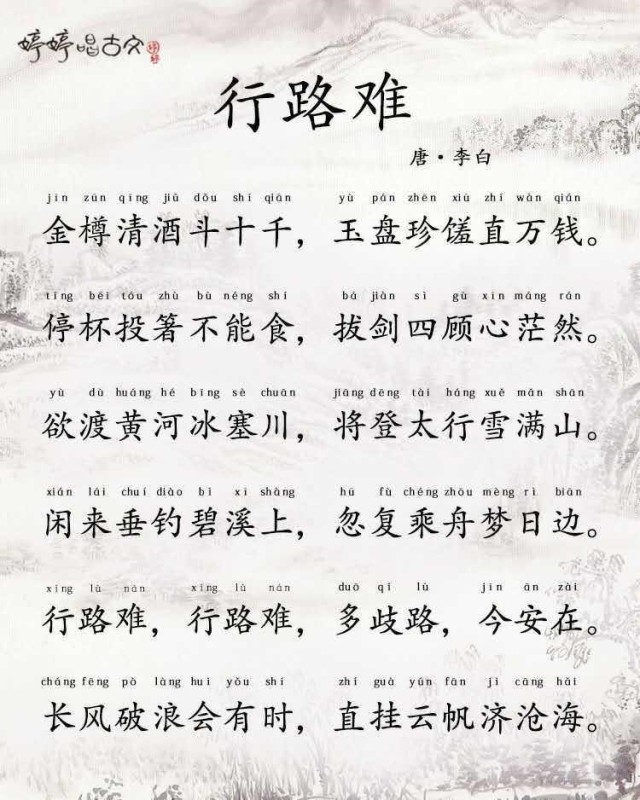 婷婷唱古文
行路难
唐·李白
jīn zūn qīng jiǔ dǒu shí qiān yù pán zhēn xiū zhí wàn qián
金樽清酒斗十千，玉盘珍馐直万钱。
tíng bēi tóu zhù bù néng shí bá jiàn sì gù xīn máng rán
停杯投箸不能食，拔剑四顾心茫然。
yù dù huáng hé bīng sè chuān jiāng dēng tài háng xuě mǎn shān
欲渡黄河冰塞川，将登太行雪满山。
xián lái chuí diào bì xī shàng hū fù chéng zhōu mèng rì biān
闲来垂钓碧溪上，忽复乘舟梦日边。
xíng lù nán xíng lù nán duō qí lù jīn ān zài
行路难，行路难，多歧路，今安在。
cháng fēng pò làng huì yǒu shí zhí guà yún fān jì cāng hǎi
长风破浪会有时，直挂云帆济沧海。